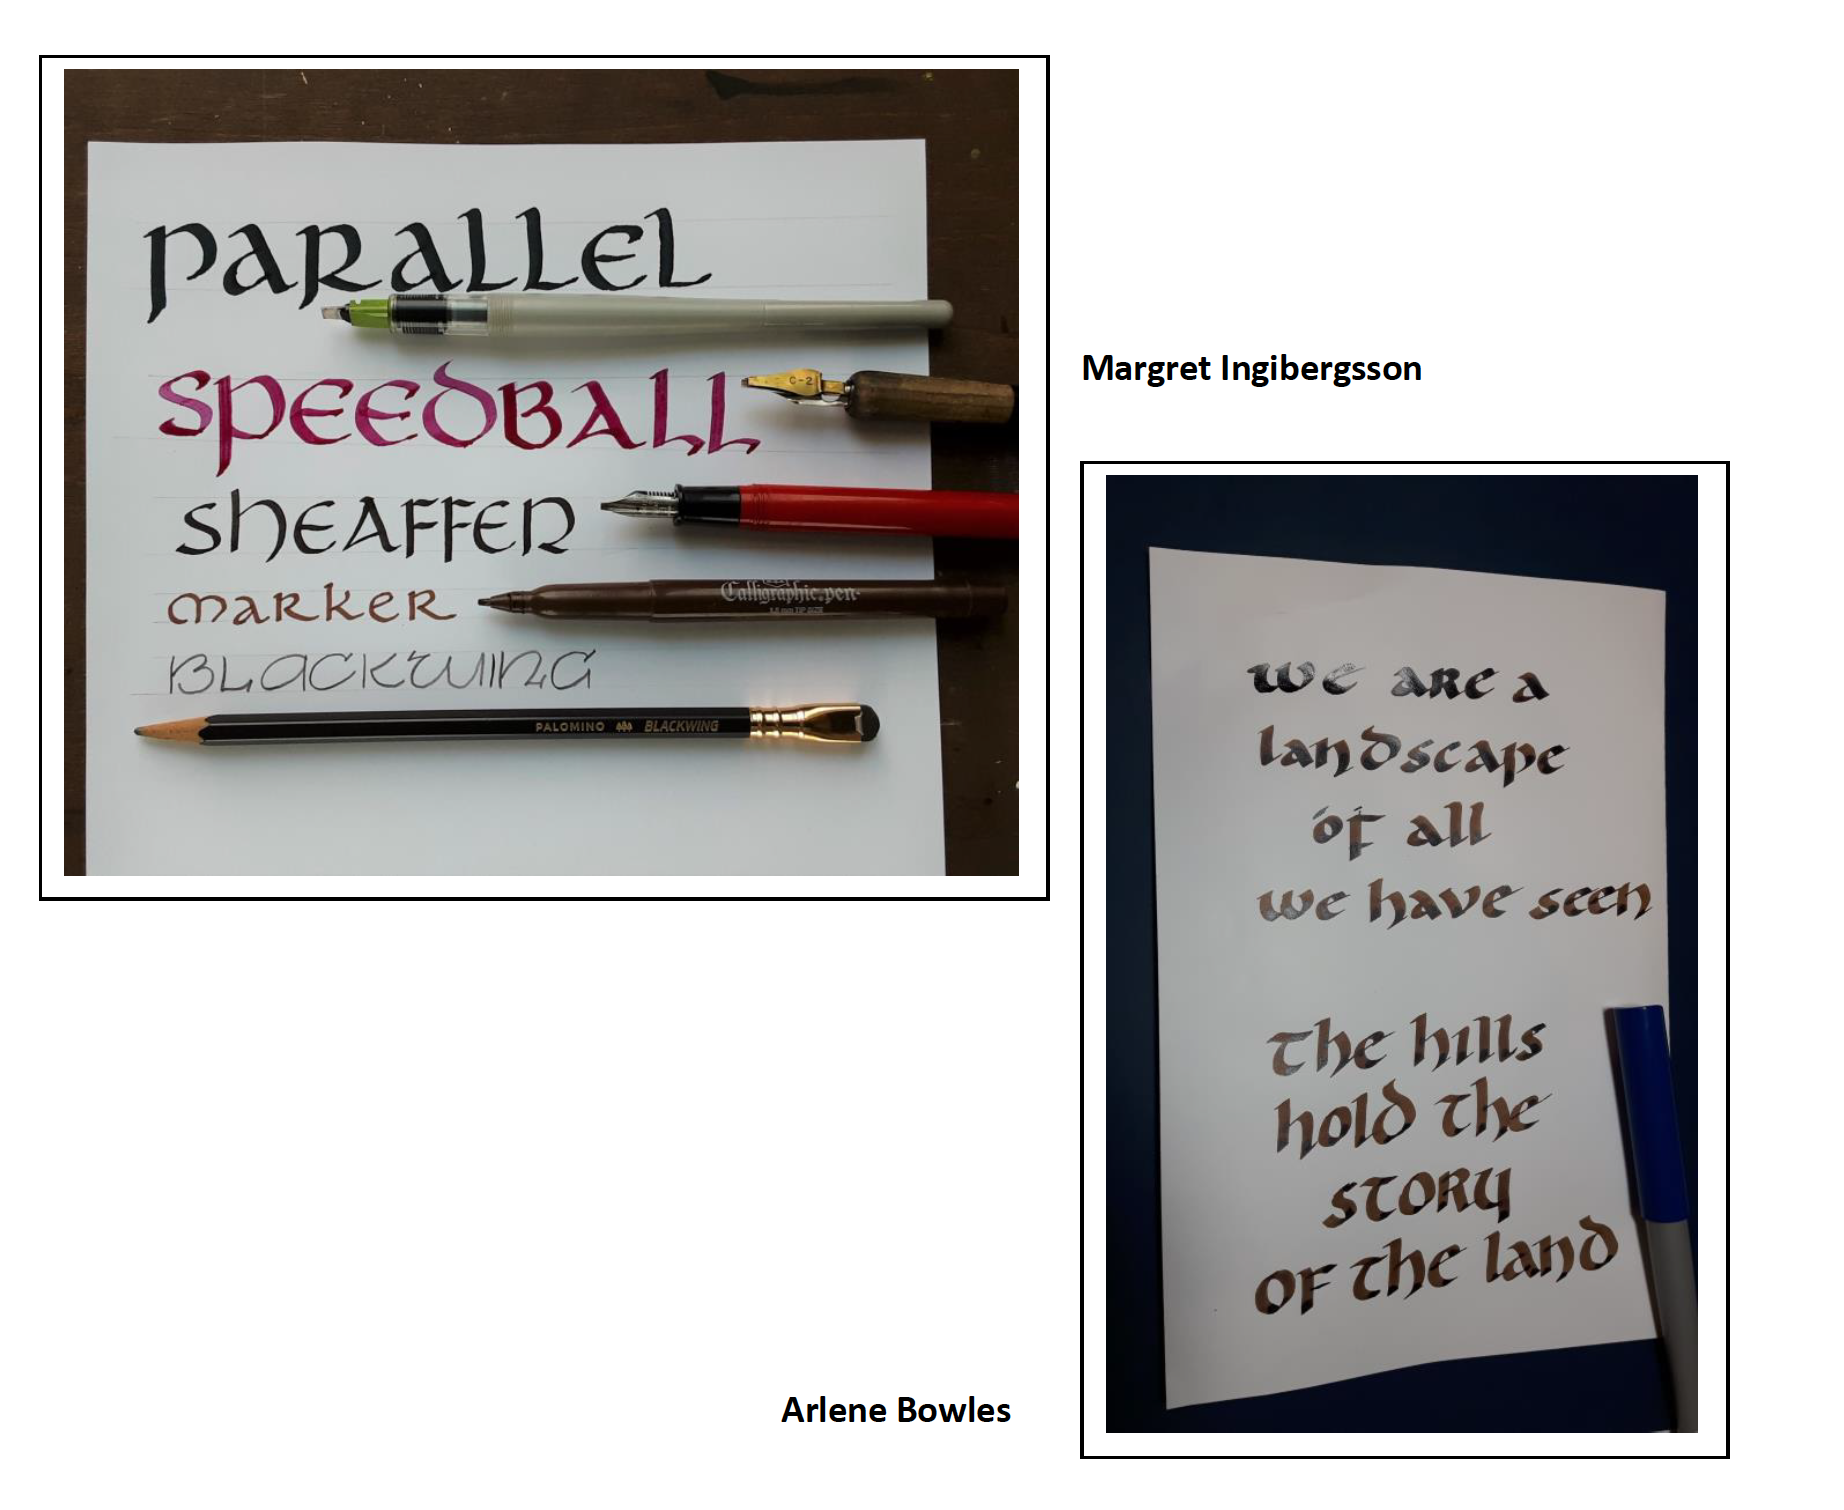 PARALLEL
SPEEDBALL
C-2
SHEAFFER
Calligraphic.pen
marker
BLACKWING
PALOMINO BLACKWING
Margret Ingibergsson
we are a
landscape
of all
we have seen
The hills
hold the
STORY
OF The land
Arlene Bowles